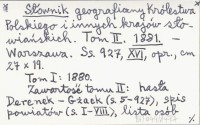 Słownik geograficzny Królestwa
Polskiego i innych krajów sło-
wiańskich. Tom II. 1881. –
Warszawa. Ss. 927, XVI, opr., cm
27 x 19.
Tom I: 1880.
Zawartość tomu II: hasła
Derenek - Gżack (s. 5-927), spis
powiatów (s. I - VIII), lista osób